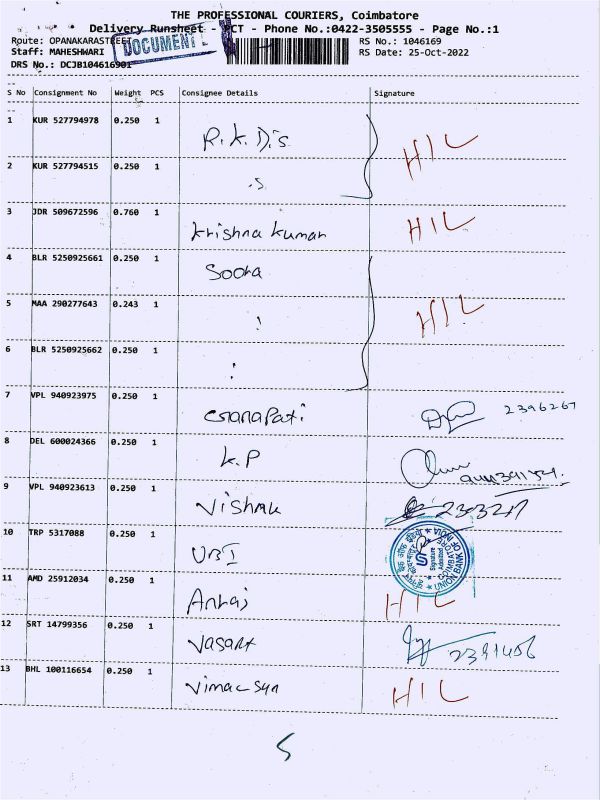 THE PROFESSIONAL COURIERS, Coimbatore
Delivery Runsheet - PCT - Phone No.:0422-3505555 - Page No.:1
Route: OPANAKARASTREET RS No.: 1046169
Staff: MAHESHWARI RS Date: 25-Oct-2022
DRS No.: DCJB104616901
DOCUMENT
S No Consignment No Weight PCS Consignee Details Signature
1 KUR 527794978 0.250 1 R.K.D.s HIL
2 KUR 527794515 0.250 1
3 JDR 509672596 0.760 1 Krishna kumar HIL
4 BLR 5250925661 0.250 1 Soora
5 MAA 290277643 0.243 1 HIL
6 BLR 5250925662 0.250 1
7 VPL 940923975 0.250 1 Ganapati 2396267
8 DEL 600024366 0.250 1 K.P
9 VPL 940923613 0.250 1
10 TRP 5317088 0.250 1 UBI
UNION BANK OF INDIA
COIMBATORE
11 AMD 25912034 0.250 1 HIL
12 SRT 14799356 0.250 1 Vasant 2391456
13 BHL 100116654 0.250 1 HIL
5